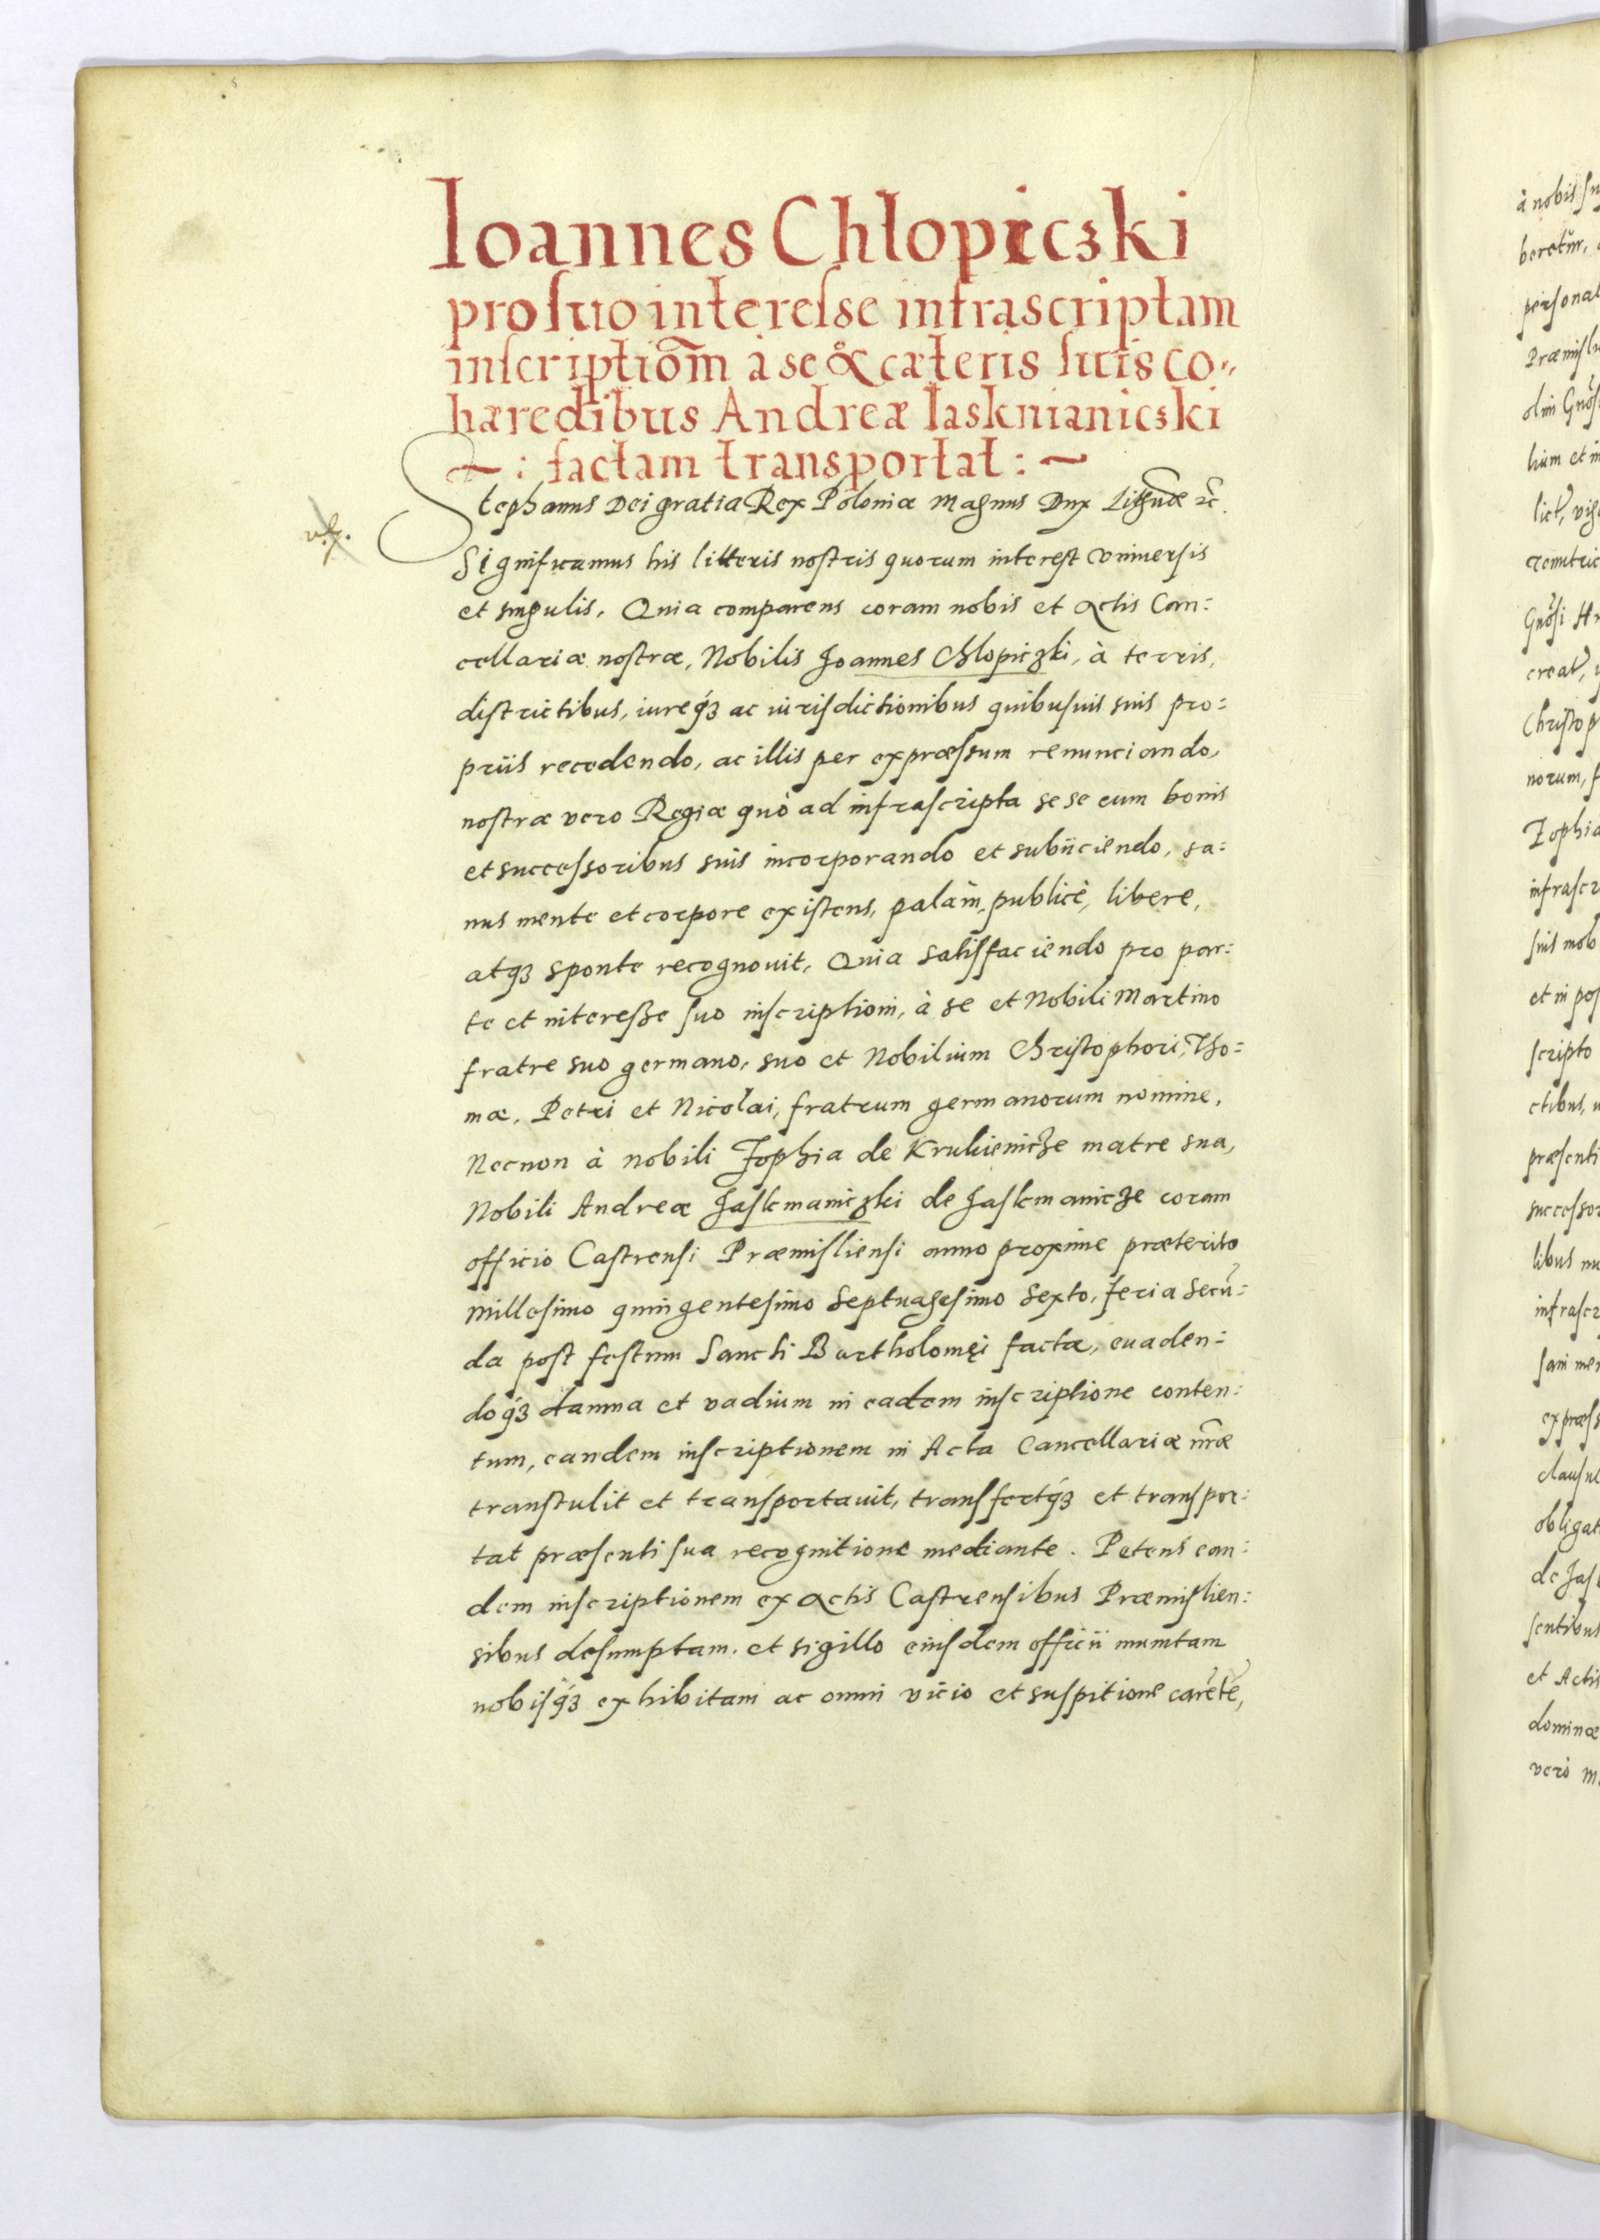 Ioannes Chlopiczki
pro suo interesse infrascriptam
inscriptiom̃ à se & cæteris suis co-
hæredibus Andreæ Iasknianiczki
~ : factam transportat : ~
Stephanus Dei gratia Rex Poloniæ Magnus Dux Lithuãe zc̃.
Significamus his litteris nostris quorum interest vniuersis
et singulis, Quia comparens coram nobis et Actis Can:
cellariæ nostræ, Nobilis Joannes Chlopiczki, à terris,
districtibus, iureq́ꝫ ac iurisdictionibus quibusuis suis pro:
priis recedendo, ac illis per expræssum renunciando,
nostræ vero Regiæ quò ad infrascripta se se cum bonis
et successoribus suis incorporando et subiiciendo, sa:
nus mente et corpore existens, palàm, publicè, libere,
atqꝫ sponte recognouit, Quia satisfaciendo pro par:
te et interesse suo inscriptioni, à se et Nobili Martino
fratre suo germano, suo et Nobilium Christophori, Tho:
mæ, Petri et Nicolai, fratrum germanorum nomine,
Necnon à nobili Zophia de Krukienicze matre sua,
Nobili Andreæ Jaskmaniczki de Jaskmanicze coram
officio Castrensi Præmisliensi anno proxime præterito
Millesimo quingentesimo Septuagesimo Sexto, feria Secũ:
da post festum Sancti Bartholomęi factæ, euaden:
doq́ꝫ damna et vadium in eadem inscriptione conten:
tum, eandem inscriptionem in Acta Cancellariæ nr̃æ
transtulit et transportauit, transfertq́ꝫ et transpor:
tat præsenti sua recognitione mediante. Petens ean:
dem inscriptionem ex Actis Castrensibus Præmislien:
sibus desumptam, et sigillo eiusdem officii munitam
nobisq́ꝫ exhibitam ac omni vicio et suspitione carẽtẽ,
à nobis
beretur,
personal
olim
lium et in
Christop
norum,
Zophia
infrascr
suis mob
et in pos
scripto
ctibus,
præsenti
successor
libus
infrascr
obligat
de Jas
sentibus
et Actis
dominæ
verò